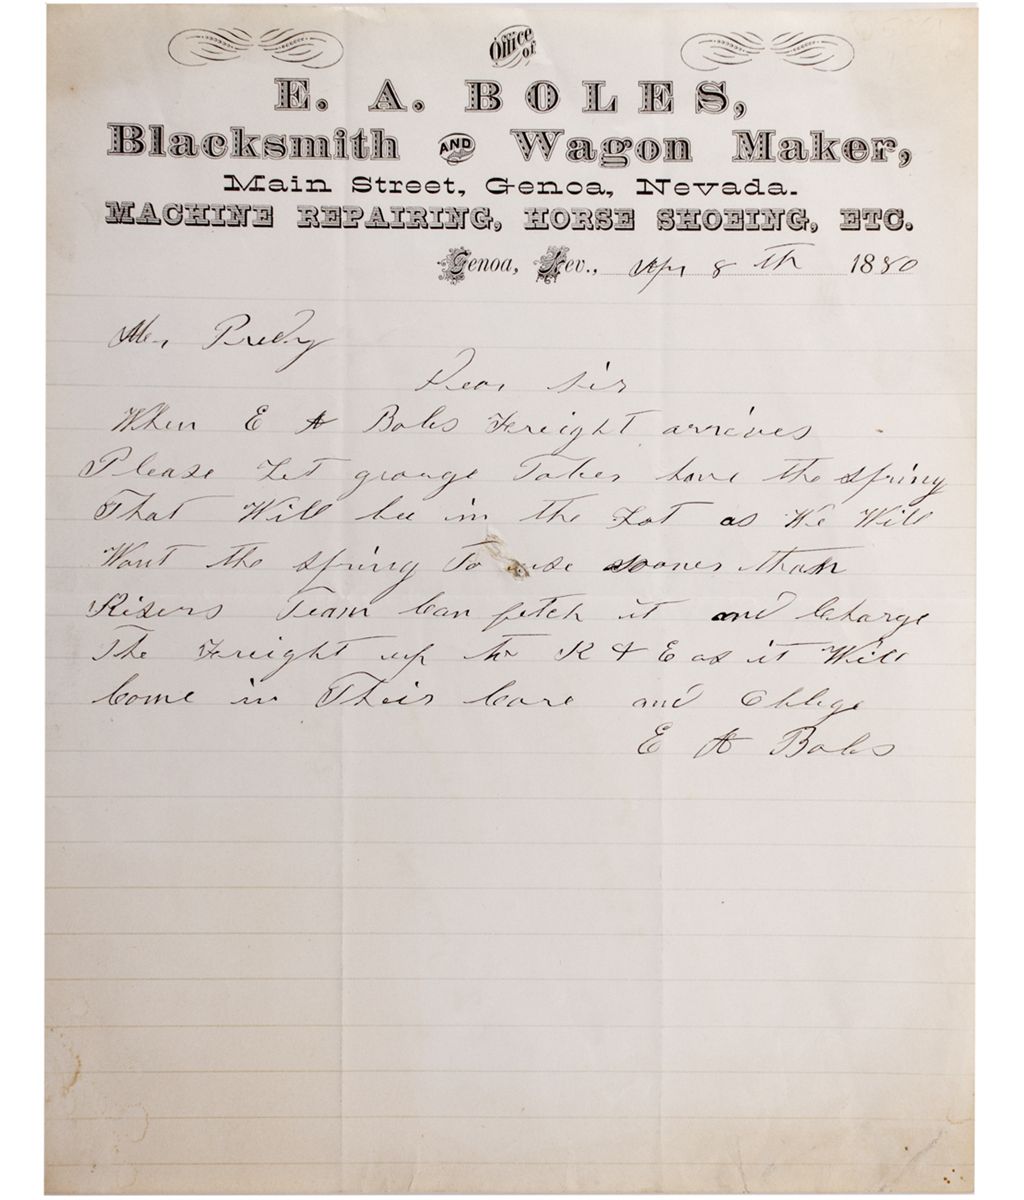 Office of
E. A. BOLES,
Blacksmith AND Wagon Maker,
Main Street, Genoa, Nevada.
MACHINE REPAIRING, HORSE SHOEING, ETC.
Genoa, Nev., Apr 8th 1880
Mr,
Dear Sir
When E A Boles Freight arrives
Please Let george have the spring
That Will bee in the Lot as We Will
Want the spring To use sooner than
Team Can fetch it and Charge
The Freight up to R & E as it Will
Come in Their Care and Oblige
E A Boles